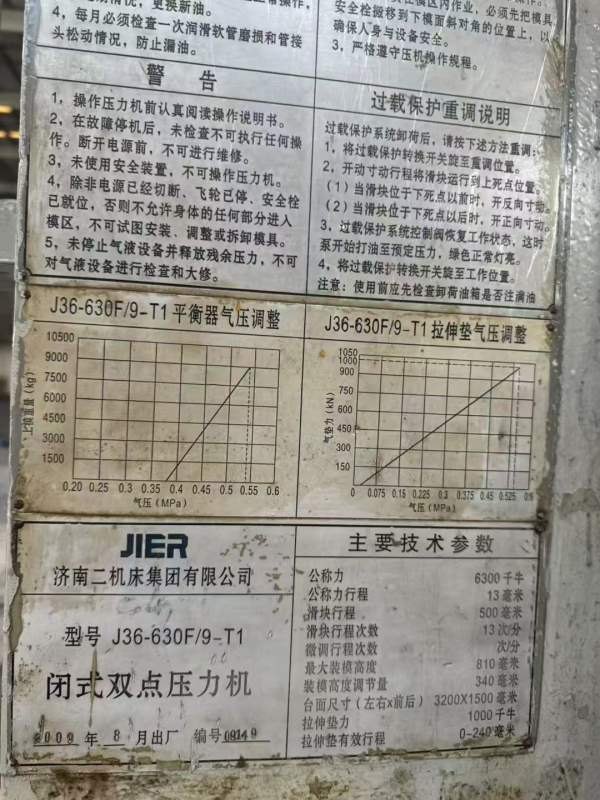 情况，更换新油。
4，每月必须检查一次润滑软管磨损和管接
头松动情况，防止漏油。
安全栓搬移到下模面斜对角的位置上，以
确保人身与设备安全。
3，严格遵守压机操作规程。
警 告
1，操作压力机前认真阅读操作说明书。
2，在故障停机后，未检查不可执行任何操
作。断开电源前，不可进行维修。
3，未使用安全装置，不可操作压力机。
4，除非电源已经切断、飞轮已停、安全栓
已就位，否则不允许身体的任何部分进入
模区，不可试图安装、调整或拆卸模具。
5，未停止气液设备并释放残余压力，不可
对气液设备进行检查和大修。
过载保护重调说明
过载保护系统卸荷后，请按下述方法重调：
1，将过载保护转换开关旋至重调位置。
2，开动寸动行程将滑块运行到上死点位置。
（1）当滑块位于下死点以前时，开反向寸动。
（2）当滑块位于下死点以后时，开正向寸动。
3，过载保护系统控制阀恢复工作状态，这时
泵开始打油至预定压力，绿色正常灯亮。
4，将过载保护转换开关旋至工作位置。
注意：使用前应先检查卸荷油箱是否注满油
J36-630F/9-T1平衡器气压调整
10500
9000
7500
6000
4500
3000
1500
上模重量(kg)
0.20 0.25 0.3 0.35 0.4 0.45 0.5 0.55 0.6
气压(MPa)
J36-630F/9-T1拉伸垫气压调整
1050
1000
900
750
600
450
300
150
气垫力(kN)
0 0.075 0.15 0.225 0.3 0.375 0.45 0.525 0.6
气压(MPa)
JIER
济南二机床集团有限公司
型号 J36-630F/9-T1
闭式双点压力机
2009 年 8 月出厂 编号09149
主要技术参数
公称力 6300千牛
公称力行程 13毫米
滑块行程 500毫米
滑块行程次数 13次/分
微调行程次数 次/分
最大装模高度 810毫米
装模高度调节量 340毫米
台面尺寸（左右x前后） 3200X1500毫米
拉伸垫力 1000千牛
拉伸垫有效行程 0-240毫米